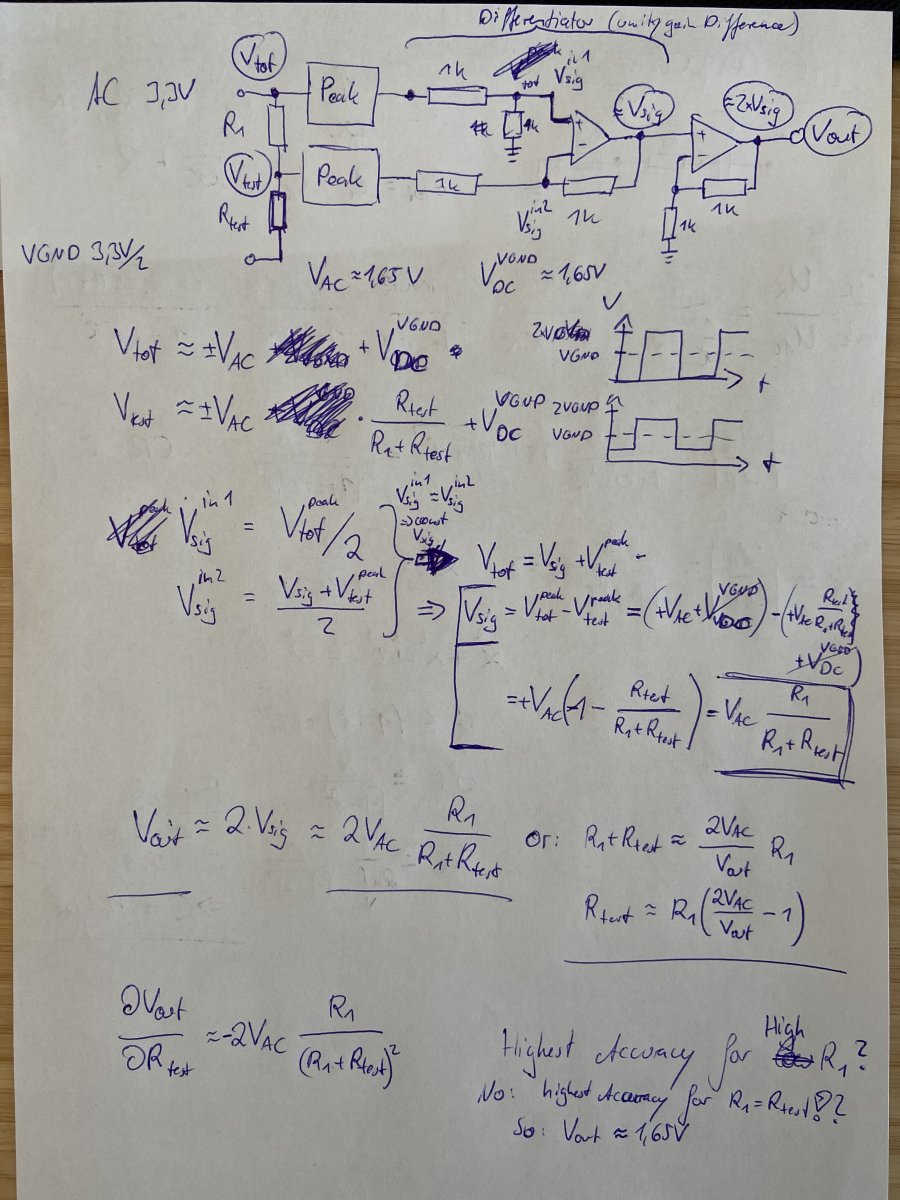 Differentiator (unity gain Difference)
V_tot
AC 3,3V
Peak
1k
tot
V_sig^in1
≈V_sig
≈2xV_sig
V_out
R_1
4k
+
-
+
-
V_test
Peak
1k
V_sig^in2
1k
1k
1k
R_test
VGND 3,3V/2
V_AC ≈ 1,65V V_DC^VGND ≈ 1,65V
V_tot ≈ ±V_AC + V_DC^VGND
V
VGND
t
V_test ≈ ±V_AC · R_test/(R_1+R_test) + V_DC^VGND
2VGND
VGND
t
V_sig^in1 = V_tot^peak/2
V_sig^in1 ≈ V_sig^in2
⇒ const
V_sig
V_tot = V_sig + V_test^peak
V_sig^in2 = (V_sig + V_test^peak)/2
⇒ V_sig = V_tot^peak - V_test^peak = (+V_AC + V_DC^VGND) - (+V_AC R_test/(R_1+R_test) + V_DC^VGND)
= +V_AC (1 - R_test/(R_1+R_test)) = V_AC R_1/(R_1+R_test)
V_out ≈ 2·V_sig ≈ 2V_AC R_1/(R_1+R_test) or: R_1+R_test ≈ 2V_AC/V_out R_1
R_test ≈ R_1 (2V_AC/V_out - 1)
∂V_out/∂R_test ≈ -2V_AC R_1/(R_1+R_test)^2
Highest Accuracy for High R_1?
No: highest Accuracy for R_1 = R_test!?
So: V_out ≈ 1,65V